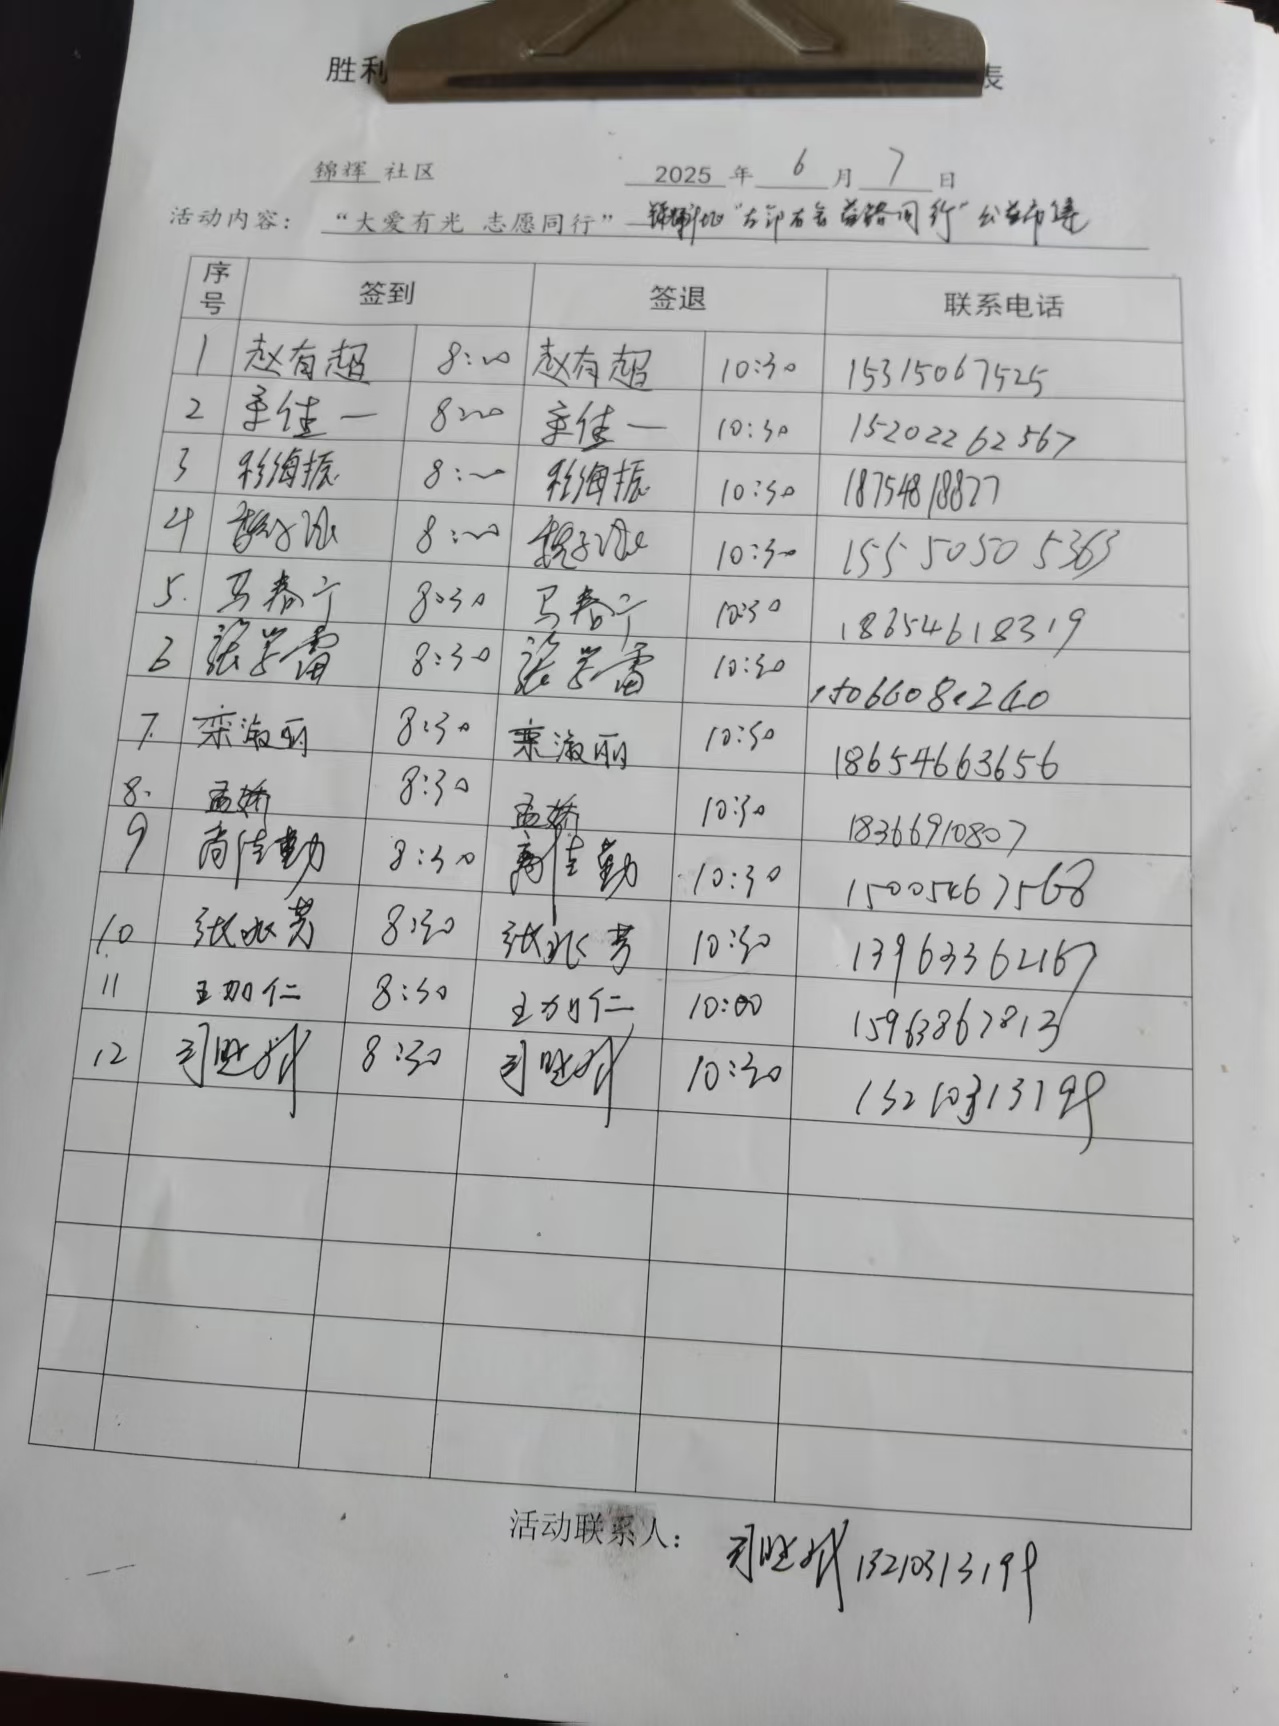 胜利 表
锦辉 社区 2025 年 6 月 7 日
活动内容： “大爱有光 志愿同行” 锦辉社区“左邻右舍 益路同行”公益市集
序号 签到 签退 联系电话
1 赵有超 8:00 赵有超 10:30 15315067525
2 佳一 8:00 佳一 10:30 15202262567
3 海振 8:00 海振 10:30 18754818827
4 8:00 10:30 15550505363
5. 马春宁 8:30 马春宁 10:30 18654618319
6 张学雷 8:30 张学雷 10:30 15066081240
7. 栾淑丽 8:30 栾淑丽 10:30 18654663656
8. 孟娇 8:30 孟娇 10:30 18366910807
9 尚佳勤 8:30 尚佳勤 10:30 15005467568
10 张永芳 8:30 张永芳 10:30 13963362167
11 王加仁 8:30 王加仁 10:00 15963867813
12 司 8:30 司 10:30 13210313199
活动联系人： 司 13210313199